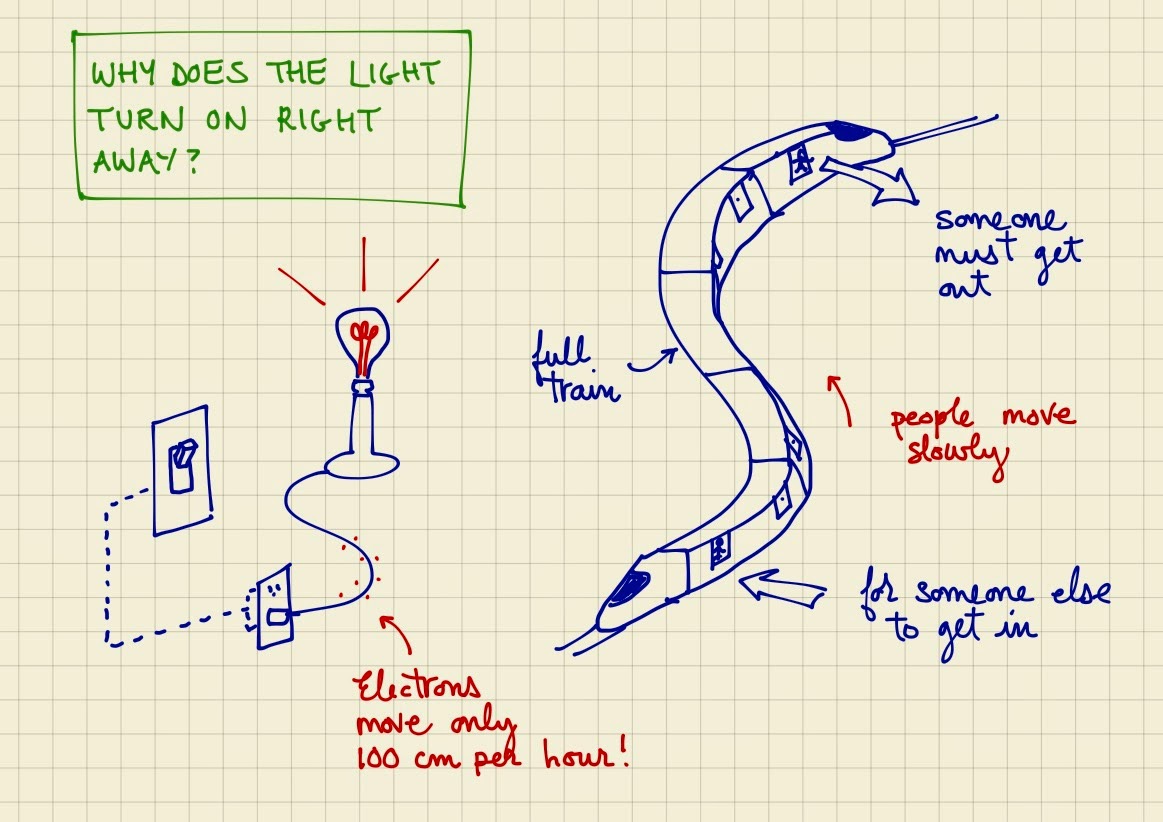 WHY DOES THE LIGHT
TURN ON RIGHT
AWAY?
someone
must get
out
full
train
people move
slowly
for someone else
to get in
Electrons
move only
100 cm per hour!